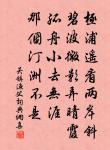 極浦遙看兩岸斜
碧波微影弄晴霞
孤舟小去無涯
那個汀洲不是
吳鎮漁父詞